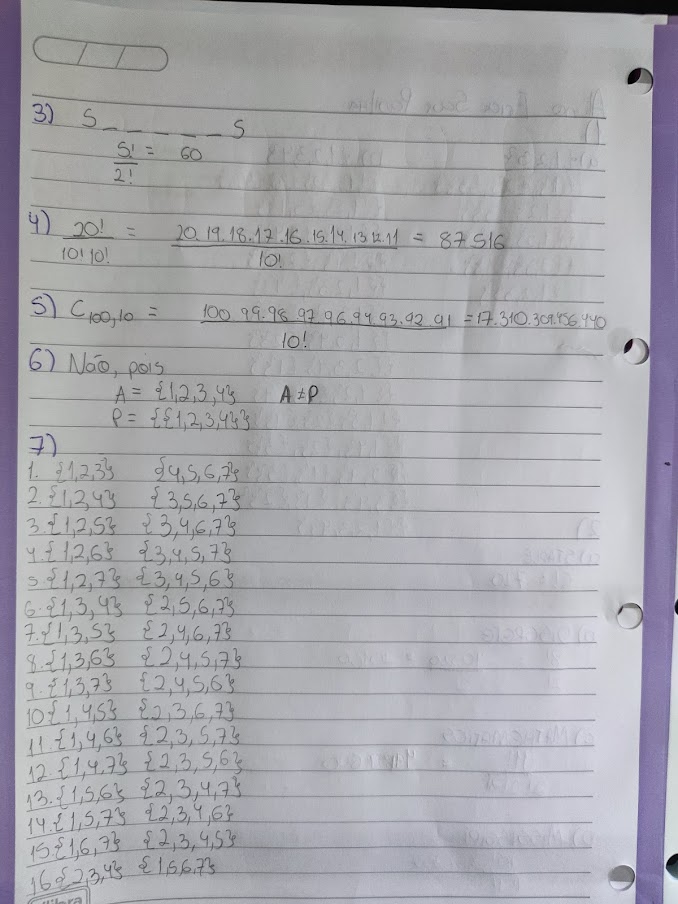 3) S _ _ _ _ _ S
5! = 60
2!
4) 20! = 20.19.18.17.16.15.14.13.12.11 = 87.516
10!10! 10!
5) C100,10 = 100.99.98.97.96.94.93.92.91 = 17.310.309.456.440
10!
6) Não, pois
A = {1,2,3,4} A ≠ P
P = {{1,2,3,4}}
7)
1. {1,2,3} {4,5,6,7}
2. {1,2,4} {3,5,6,7}
3. {1,2,5} {3,4,6,7}
4. {1,2,6} {3,4,5,7}
5. {1,2,7} {3,4,5,6}
6. {1,3,4} {2,5,6,7}
7. {1,3,5} {2,4,6,7}
8. {1,3,6} {2,4,5,7}
9. {1,3,7} {2,4,5,6}
10 {1,4,5} {2,3,6,7}
11. {1,4,6} {2,3,5,7}
12. {1,4,7} {2,3,5,6}
13. {1,5,6} {2,3,4,7}
14. {1,5,7} {2,3,4,6}
15. {1,6,7} {2,3,4,5}
16. {2,3,4} {1,5,6,7}